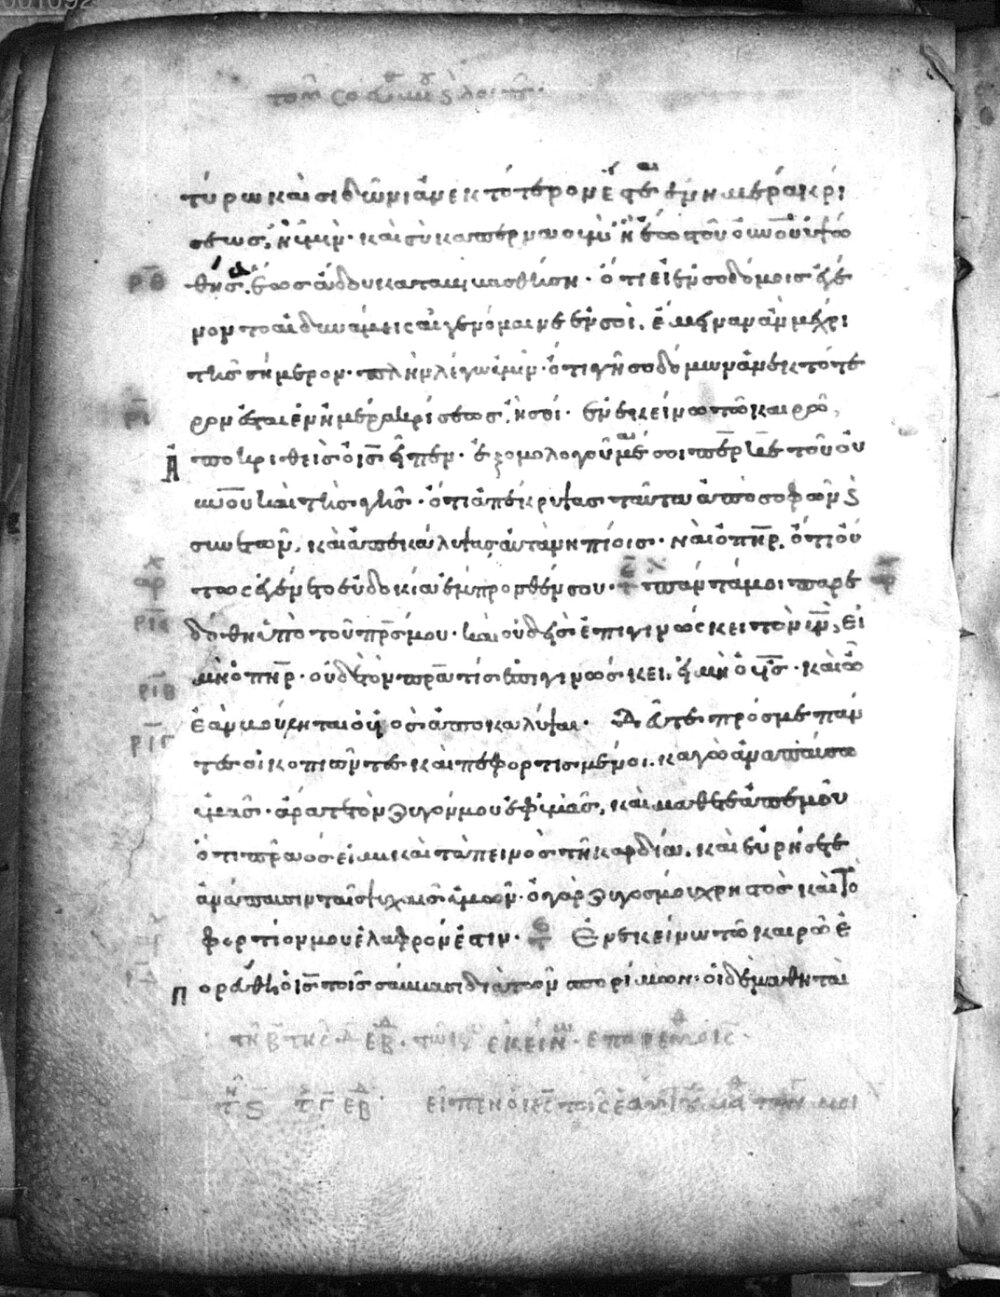 τύρω καὶ σιδῶνι ἀνεκτότερον ἔσται ἐν ἡμέρα κρί
σεως, ἢ ὑμῖν· καὶ σὺ καπερναοὺμ ἡ ἕως τοῦ οὐ̅νου ὑψω
ρ̅θ
θήσ, ἕως ἅδου καταβιβασθήση· ὅτι εἰ ἐν σοδόμοις ἐγέ
νοντο αἱ δυνάμεις αἱ γενόμεναι ἐν σοὶ, ἔμεναν ἂν μέχρι
τῆς σήμερον· πλὴν λέγω ὑμῖν· ὅτι γῆ σοδόμων ἀνεκτότε
ρ̅ι
ρον ἔσται ἐν ἡμέρα κρίσεως, ἢ σοί· ἐν ἐκείνω τῶ καιρῶ,
Α
ποκριθεὶς ὁ ι̅ς εἶπεν· ἐξομολογοῦμαί σοι πε̅ρ κ̅ε τοῦ οὐ
ν̅ου καὶ τῆς γῆς· ὅτι ἀπέκρυψας ταῦτα ἀπὸ σοφῶν ϗ
συνετῶν, καὶ ἀπεκάλυψας αὐτὰ νηπίοις· ναὶ ὁ π̅η̅ρ, ὅτι οὕ
τως ἐγένετο εὐδοκία ἔμπροσθέν σου· πάντα μοι παρε
ρ̅ι̅α
δόθη ὑπὸ τοῦ π̅ρ̅ς μου· καὶ οὐδεὶς ἐπιγινώσκει τὸν υ̅ν, εἰ
ρ̅ι̅β
μὴ ὁ π̅η̅ρ· οὐδὲ τὸν π̅ρ̅α τὶς ἐπιγινώσκει, εἰ μὴ ὁ υ̅ς· καὶ ὧ
ρ̅ι̅γ
ἐὰν βούληται ὁ υ̅ς ἀποκαλύψαι· Δεῦτε πρός με πάν
τες οἱ κοπιῶντες καὶ πεφορτισμένοι, καγὼ ἀναπαύσω
ὑμᾶς· ἄρατε τὸν ζυγόν μου ἐφ' ὑμᾶς, καὶ μάθετε ἀπ' ἐμοῦ
ὅτι πρᾶος εἰμι καὶ ταπεινὸς τῆ καρδία, καὶ εὑρήσετε
ἀνάπαυσιν ταῖς ψυχαῖς ὑμῶν· ὁ γὰρ ζυγός μου χρηστὸς καὶ τὸ
φορτίον μου ἐλαφρόν ἐστιν· Ἐν ἐκείνω τῶ καιρῶ ἐ
Π
ορεύθη ὁ ι̅ς τοῖς σάββασι διὰ τῶν σπορίμων· οἱ δὲ μαθηταὶ